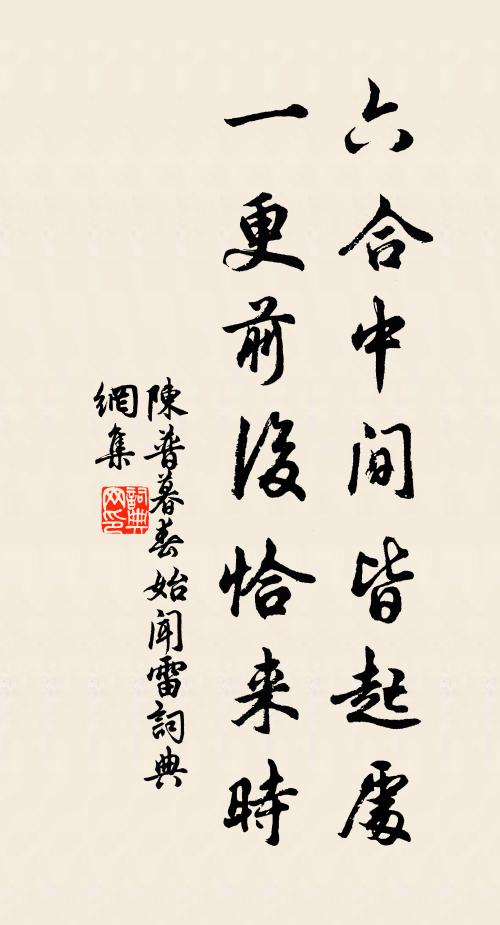 六合中間皆起處
一更前後恰来時
陳普暮春始聞雷詞典
網集
詞典
网印